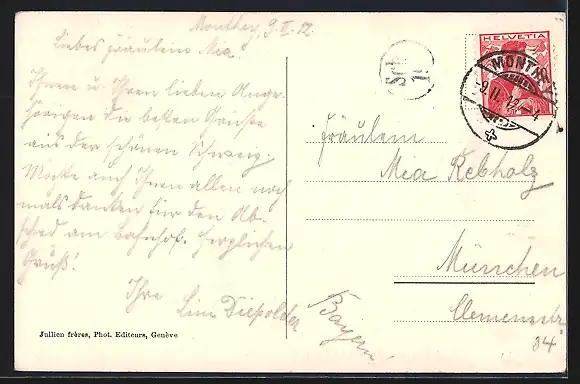 Monthey, 9. II. 12.
Liebes Fräulein Mia!
Ihnen u. Ihren lieben Ange-
hörigen die besten Grüße
aus der schönen Schweiz.
Möchte auch Ihnen allen noch
mals danken für den Ab-
schied am Bahnhof. Herzlichen
Gruß!
Ihre
Lina Diepolder
Jullien frères, Phot. Editeurs, Genève
HELVETIA
MONTHEY
9. II. 12
Fräulein
Mia Rebholz
München
Clemensstr.
34
Bayern